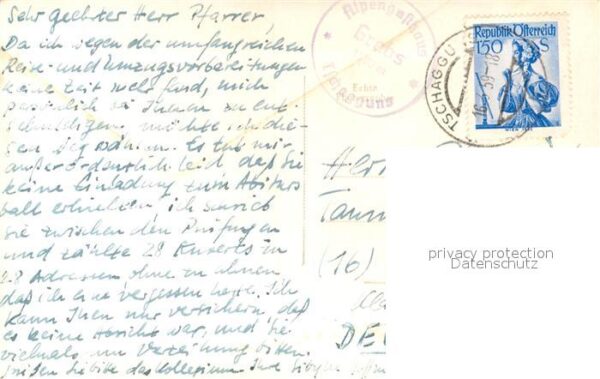 Sehr geehrter Herr Pfarrer,
Da ich wegen der umfangreichen
Reise- und Umzugsvorbereitungen
keine Zeit mehr find, mich
persönlich bei Ihnen zu ent-
schuldigen, möchte ich die-
sen Weg wählen. Es tut mir
außerordentlich leid, daß Sie
keine Einladung zum Abiturs
ball erhielten, ich schrieb
sie zwischen den Prüfungen
und zählte 28 Kuverts zu
28 Adressen ohne zu ahnen
daß ich eine vergessen hatte. Ich
kann Ihnen nur versichern, daß
es keine Absicht war, und Sie
vielmals um Verzeihung bitten.
Grüßen Sie bitte das Kollegium Ihre
Alpengasthaus
Tschagguns
TSCHAGGU
Republik Österreich
1.50 S
Herr
(16)
DE
privacy protection
Datenschutz